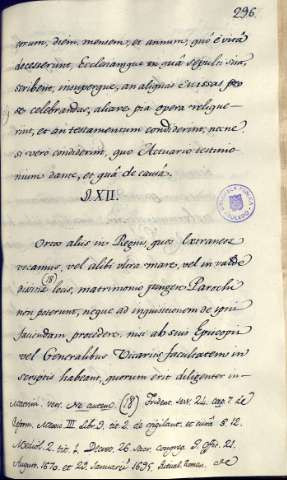 296
eorum, diem, mensem, et annum, quo è vitâ
decesserint, Ecclesiamque in quâ sepulti sunt,
scribent, insuperque, an aliquas è Missas pro
se celebrandas, aliave pia opera relique-
rint, et an testamentum condiderint, necne,
si vero condiderint, quo Actuario testimo-
nium dante, et quâ de causâ.
§. XII.
Ortos aliis in Regnis, quos Extraneos
vocamus, vel alibi ultra mare, vel in valde
(18)
dissitis locis, matrimonio jungere Parochi
non poterunt, neque ad inquisitionem de ipsis
faciendam procedere, nisi ab suis Episcopis
vel Generalibus Vicariis facultatem in
scriptis habeant, quorum erit diligenter in-
Matrim. vers. Ne autem. (18) Trident. sess. 24. cap. 7. de
Reform. Mexic. III. Lib. 3. tit. 2. de vigilant. et cura §. 12.
Mediol. 2. tit. 1. Decret. 26. Sacr. Congreg. S. Offic. 21.
August. 1670. et 23. Januarii 1695. Ritual. Roman.
BIBLIOTECA PUBLICA
TOLEDO